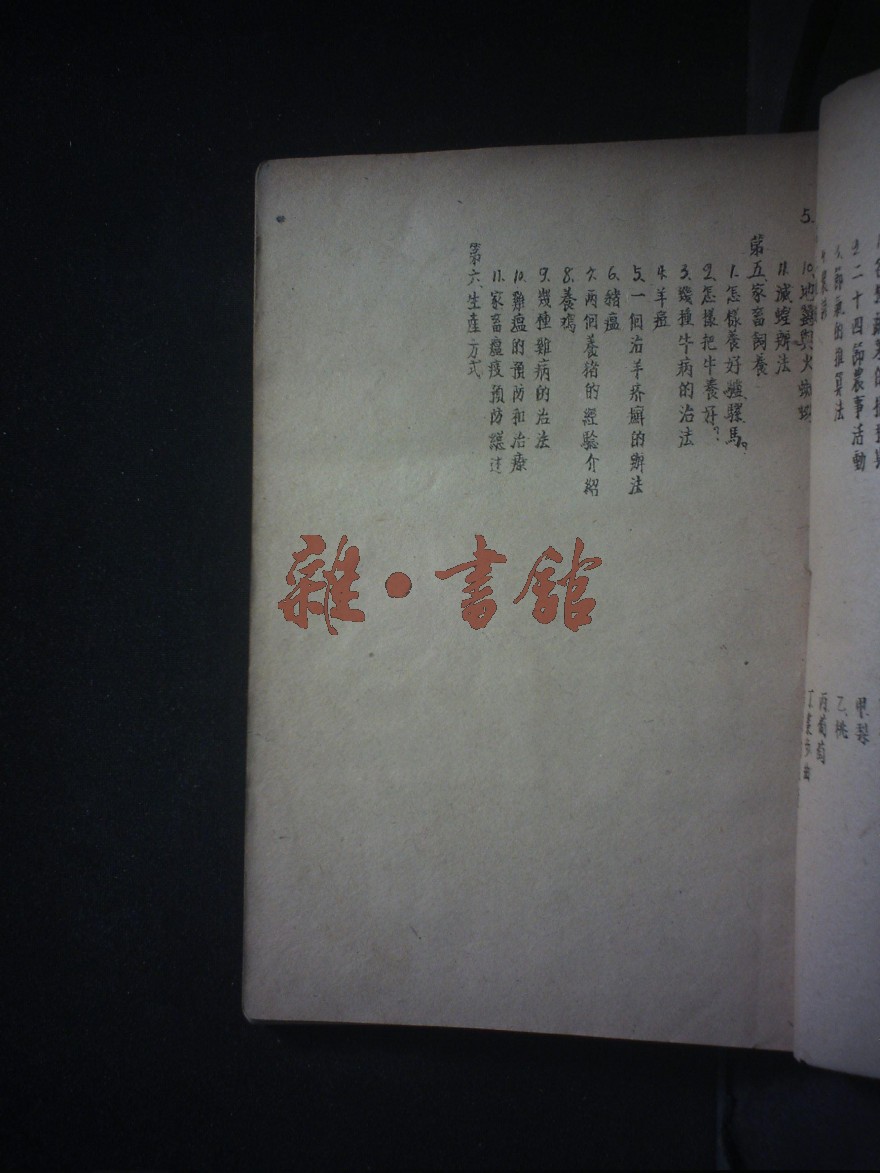 二十四節農事活動
節氣的推算法
甲.梨
乙.桃
丙.葡萄
5.
10.地蠶與火蜘蛛
11.滅蝗辦法
第五、家畜飼養
1.怎樣養好驢騾馬。
2.怎樣把牛養好?
3.幾種牛病的治法
4.羊瘟
5.一個治羊疥癬的辦法
6.豬瘟
7.兩個養猪的經驗介紹
8.養鷄
9.幾種雞病的治法
10.雞瘟的預防和治療
11.家畜瘟疫預防
第六、生產方式
雜·書館